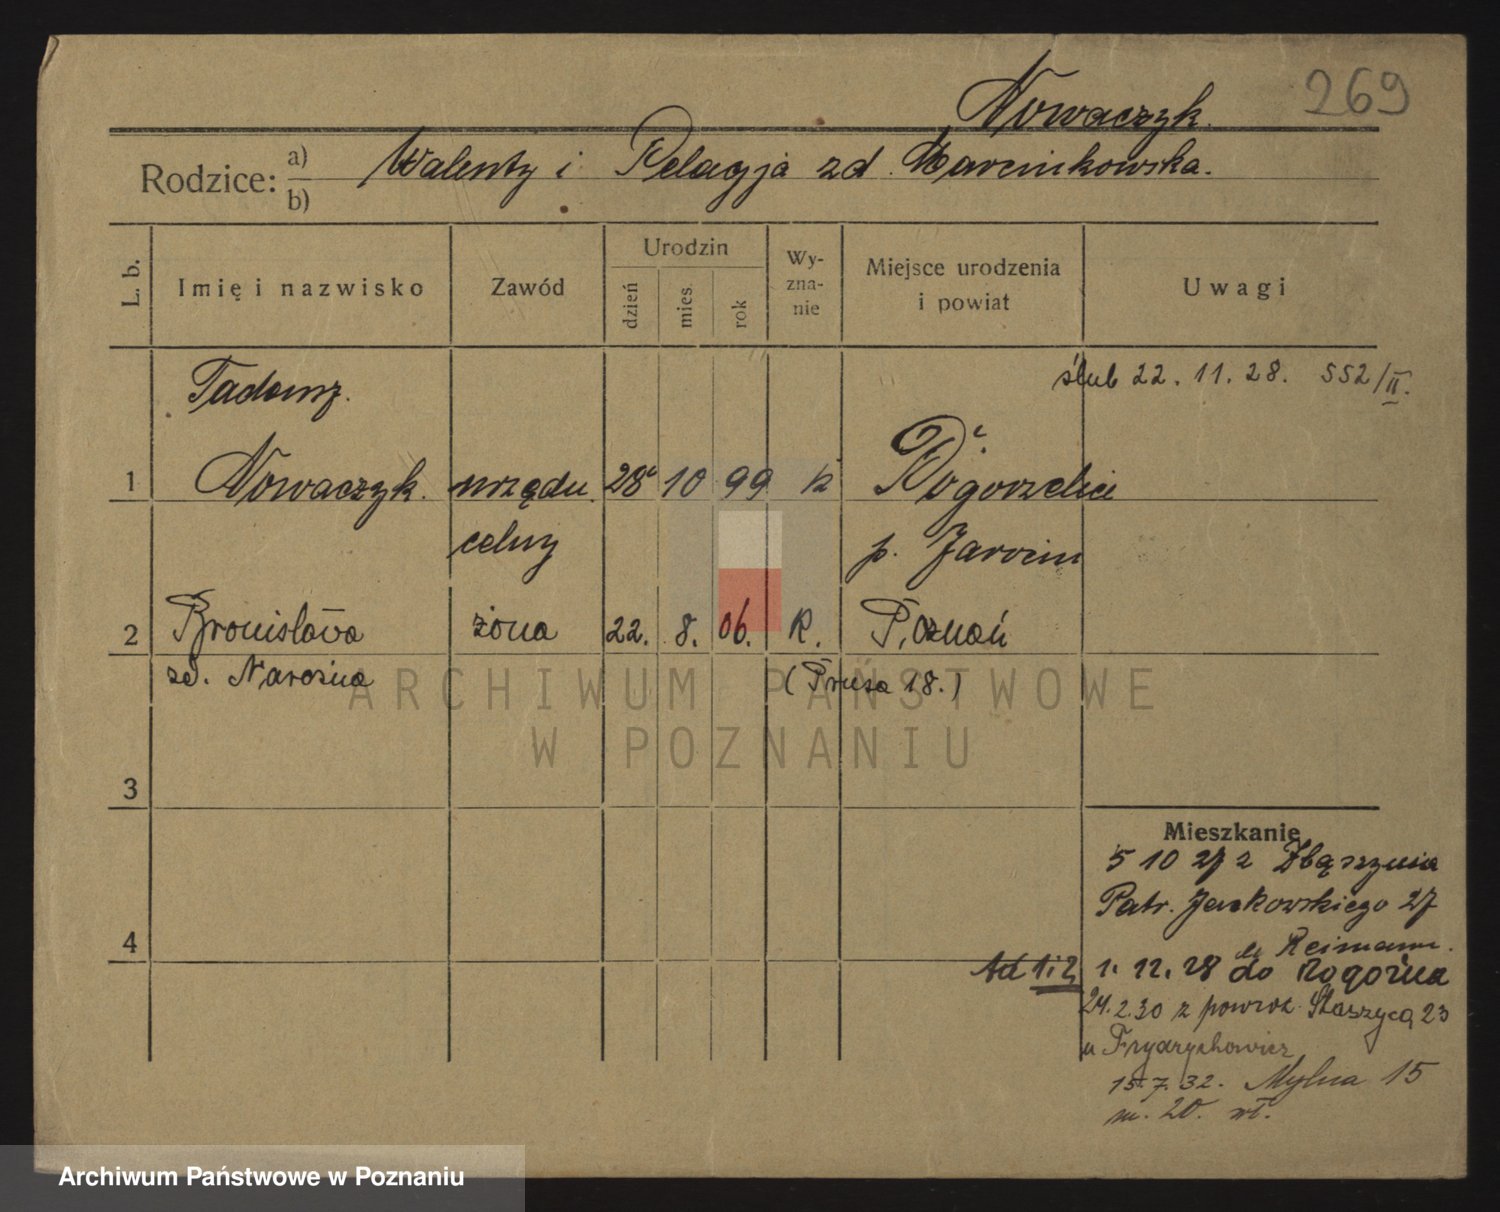 269
Nowaczyk.
Rodzice: a) b) Walenty i Pelagja zd. Marcinkowska.
L. b.
Imię i nazwisko
Zawód
Urodzin
dzień
mies.
rok
Wy-
zna-
nie
Miejsce urodzenia
i powiat
Uwagi
ślub 22. 11. 28. 552/II.
Tadeusz.
1 Nowaczyk. urzędn. 28 10 99 k
celny p. Jarocin
2 Bronisława żona 22. 8. 06. R. Poznań
zd. Narożna (Prusa 18.)
ARCHIWUM PAŃSTWOWE
W POZNANIU
3
Mieszkanie
5 10 27 z Zbąszynia
Patr. Jackowskiego 27
4
u Reimann.
Ad 1i2 1. 12. 28 do Rogoźna
24. 2. 30 z powrot. Staszyca 23
u Frydrychowicz
15. 7. 32. Mylna 15
m. 20. wł.
Archiwum Państwowe w Poznaniu